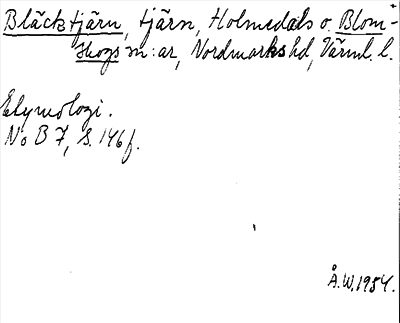 Bläcktjärn, tjärn, Holmedals o. Blom-
skogs m:ar, Nordmarks hd, Värml. l.
Etymologi.
No B 7, s. 146 f.
Å.W. 1954.